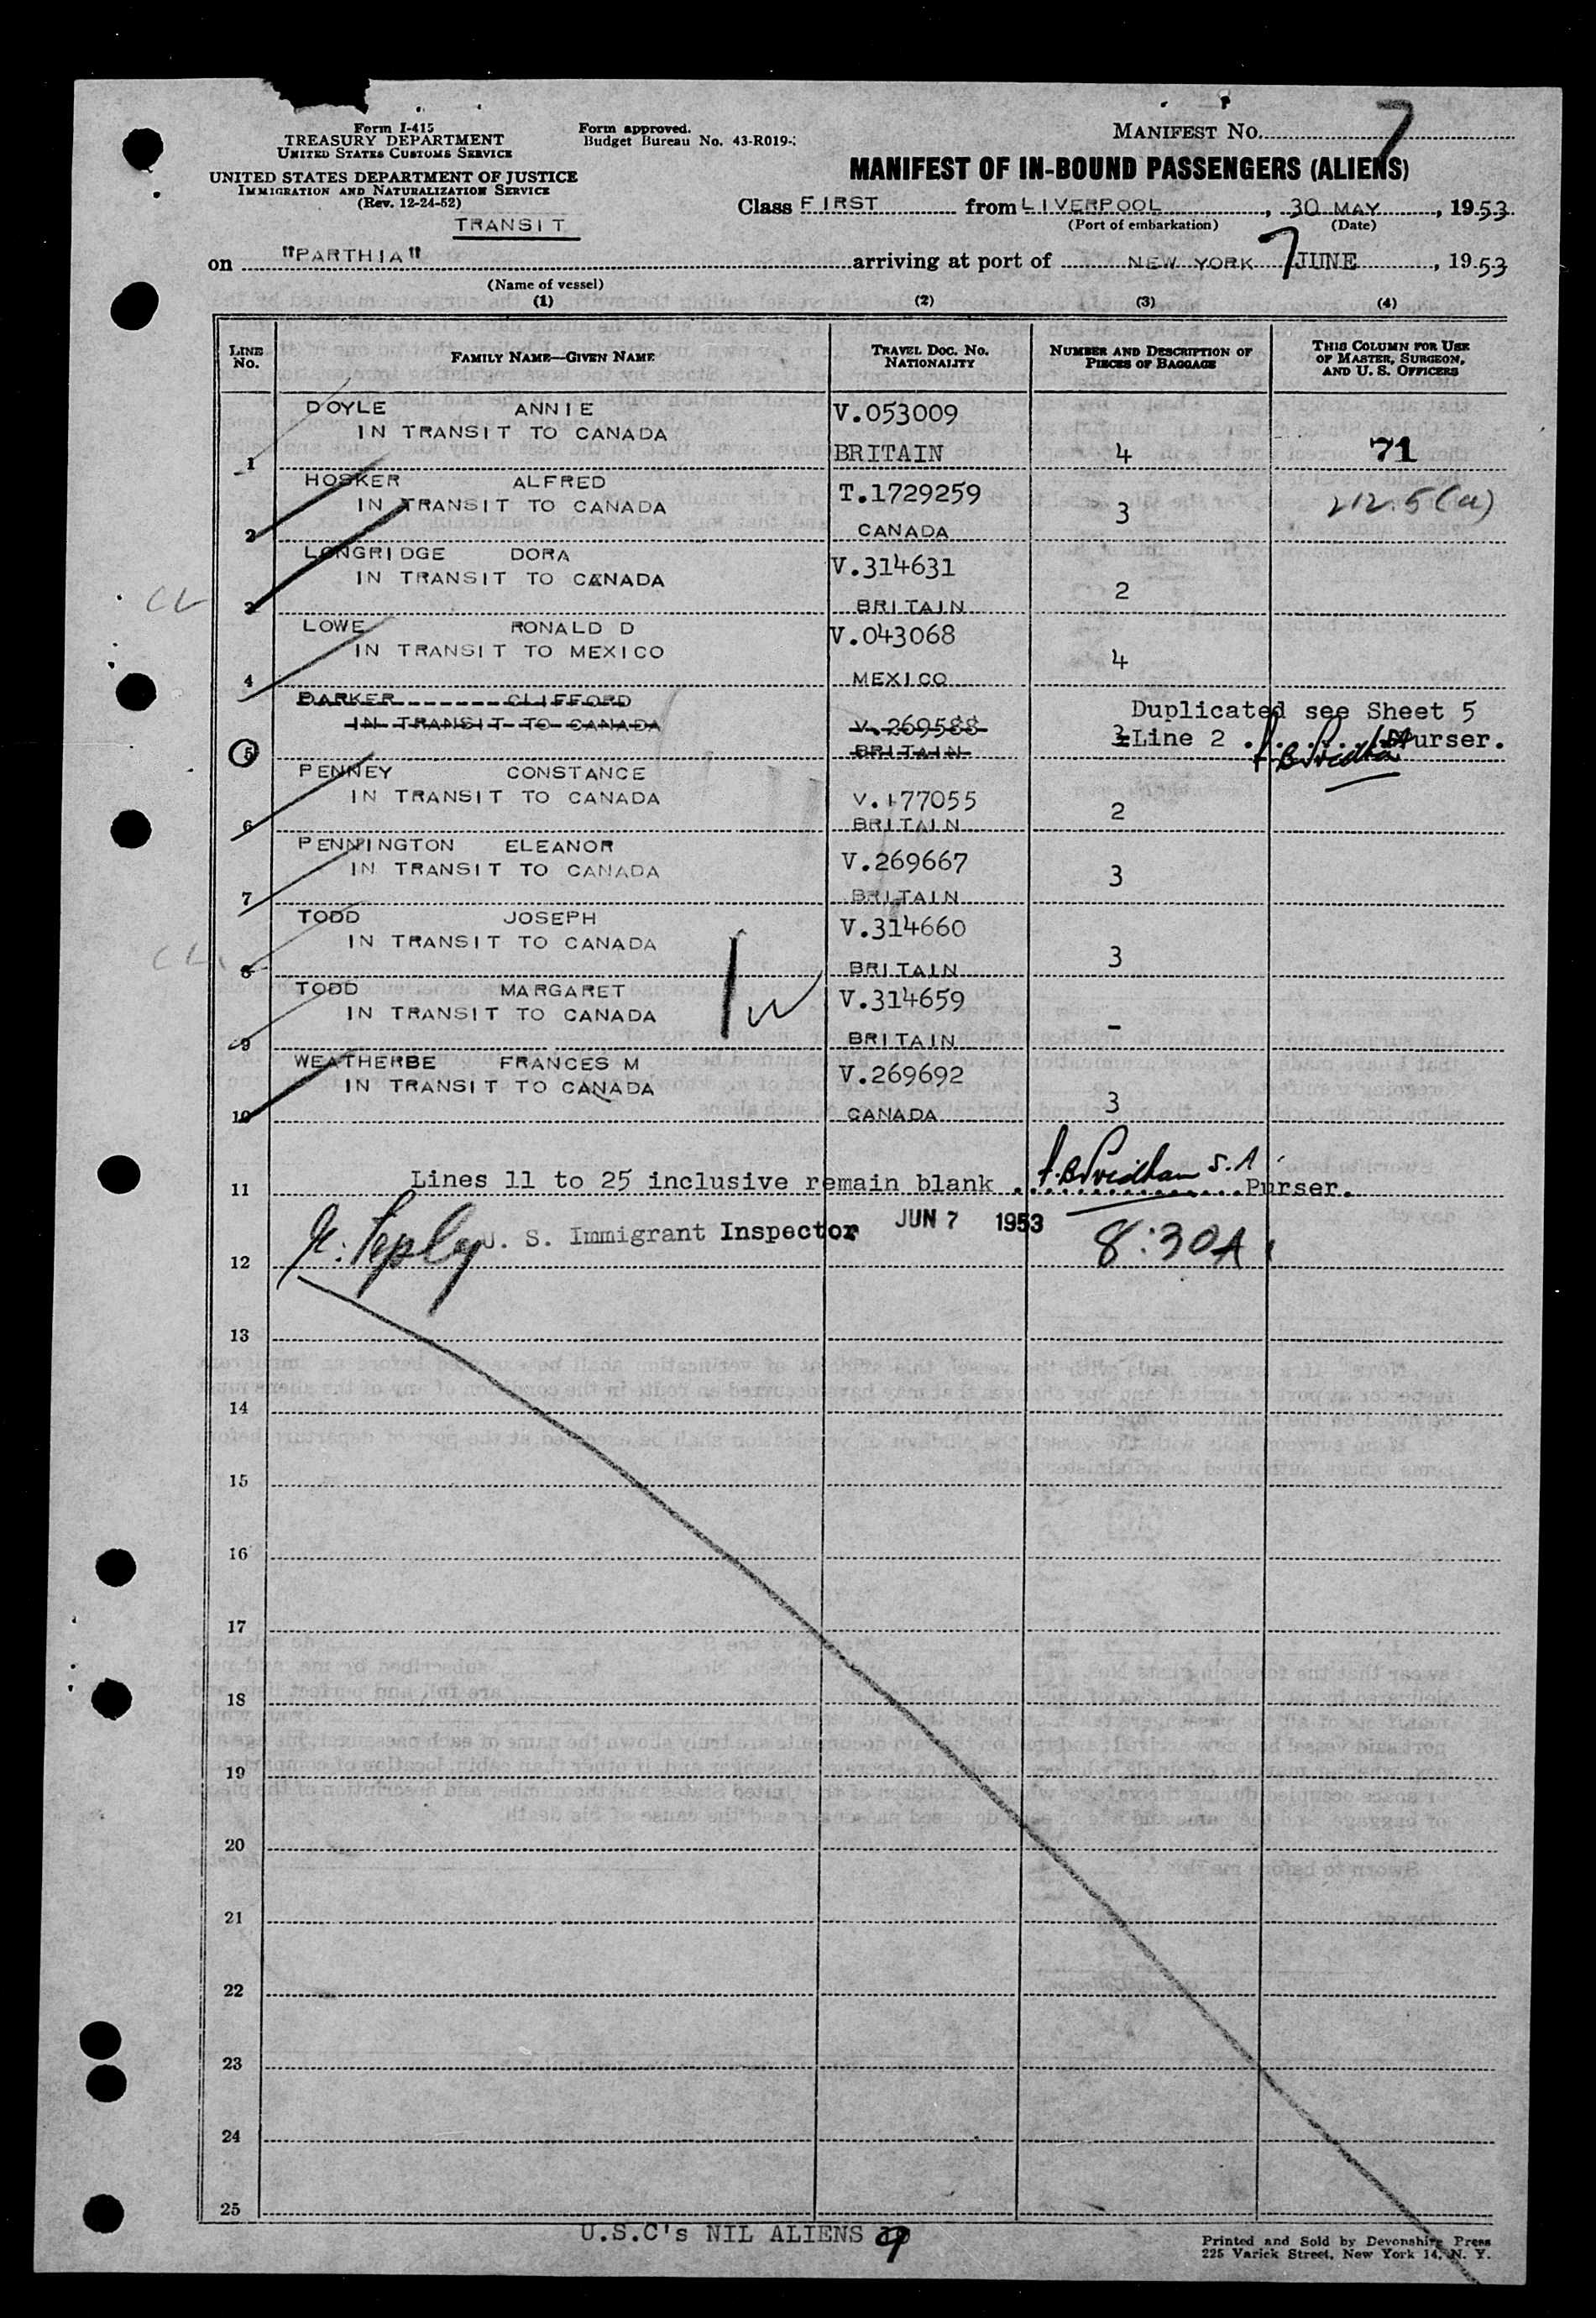 Form I-415
TREASURY DEPARTMENT
UNITED STATES CUSTOMS SERVICE
UNITED STATES DEPARTMENT OF JUSTICE
IMMIGRATION AND NATURALIZATION SERVICE
(Rev. 12-24-52)
TRANSIT
Form approved.
Budget Bureau No. 43-R019-
MANIFEST NO. 7
MANIFEST OF IN-BOUND PASSENGERS (ALIENS)
Class FIRST from LIVERPOOL, 30 MAY, 1953
(Port of embarkation) (Date)
on "PARTHIA" arriving at port of NEW YORK 7 JUNE, 1953
(Name of vessel)
(1) (2) (3) (4)
LINE NO. FAMILY NAME—GIVEN NAME TRAVEL DOC. NO. NATIONALITY NUMBER AND DESCRIPTION OF PIECES OF BAGGAGE THIS COLUMN FOR USE OF MASTER, SURGEON, AND U. S. OFFICERS
DOYLE ANNIE V.053009
IN TRANSIT TO CANADA
1 BRITAIN 4 71
HOSKER ALFRED T.1729259
IN TRANSIT TO CANADA 3 212.5(a)
2 CANADA
LONGRIDGE DORA V.314631
IN TRANSIT TO CANADA 2
3 BRITAIN
LOWE RONALD D V.043068
IN TRANSIT TO MEXICO 4
4 MEXICO
DARKER CLIFFORD Duplicated see Sheet 5
IN TRANSIT TO CANADA V.269588 3 Line 2 Purser.
5 BRITAIN
PENNEY CONSTANCE
IN TRANSIT TO CANADA V.177055 2
6 BRITAIN
PENNINGTON ELEANOR V.269667
IN TRANSIT TO CANADA 3
7 BRITAIN
TODD JOSEPH V.314660
IN TRANSIT TO CANADA 3
8 BRITAIN
TODD MARGARET V.314659
IN TRANSIT TO CANADA -
9 BRITAIN
WEATHERBE FRANCES M V.269692
IN TRANSIT TO CANADA 3
10 CANADA
11 Lines 11 to 25 inclusive remain blank Purser.
12 U. S. Immigrant Inspector JUN 7 1953 8:30A
13
14
15
16
17
18
19
20
21
22
23
24
25
U.S.C's NIL ALIENS 9
Printed and Sold by Devonshire Press
225 Varick Street, New York 14, N. Y.